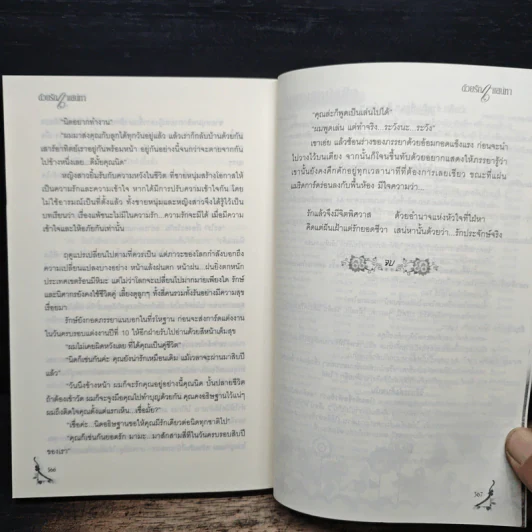 ด้วยรัก
"นิดอยากทำงาน"
"ผมมาส่งคุณกับลูกได้ทุกวันอยู่แล้ว แล้วเราก็กลับบ้านด้วยกัน
เสาร์อาทิตย์เราก็อยู่กันพร้อมหน้า อยู่กันอย่างนี้จนกว่าจะตายจากกัน
ไปข้างหนึ่งเลย...ดีมั้ยคุณนิด"
หญิงสาวยิ้มรับกับความหวังในชีวิต ที่ชายหนุ่มสร้างโอกาสให้
เป็นความรักและความเข้าใจ หากได้มีการปรับความเข้าใจกัน โดย
ไม่ใช้อารมณ์เป็นที่ตั้งแล้ว ทั้งชายหนุ่มและหญิงสาวจึงได้รู้ไว้เป็น
บทเรียนว่า เรื่องแพ้ชนะไม่มีในความรัก...ความรักจะมีได้ เมื่อมีความ
เข้าใจและให้อภัยกันเท่านั้น
ฤดูแปรเปลี่ยนไปตามที่ควรเป็น แต่ภาวะของโลกกำลังบอกถึง
ความเปลี่ยนแปลงบางอย่าง หน้าแล้งฝนตก หน้าฝน...ฝนยิ่งตกหนัก
ประเทศเขตร้อนมีหิมะ แต่ไม่ว่าโลกจะเปลี่ยนไปมากมายเพียงใด รักษ์
และนิศากรยังคงใช้ชีวิตคู่ เลี้ยงดูลูกๆ ทั้งสี่คนรวมทั้งรันอย่างมีความสุข
เรื่อยมา
รักษ์ยังกอดภรรยาแนบอกในที่รโหฐาน ก่อนจะส่งการ์ดแต่งงาน
ในวันครบรอบแต่งงานปีที่ 10 ให้อีกฝ่ายรับไปอ่านด้วยสีหน้าเต็มสุข
"ผมไม่เคยผิดหวังเลย ที่ได้คุณเป็นคู่ชีวิต"
"นิดก็เช่นกันค่ะ คุณยังน่ารักเหมือนเดิม แม้เวลาจะผ่านมาสิบปี
แล้ว"
"วันนี้ข้างหน้า ผมก็จะรักคุณอยู่อย่างนี้คุณนิด บั้นปลายชีวิต
ถ้าต้องเข้าวัด ผมก็จะจูงมือคุณไปทำบุญด้วยกัน คุณคงอธิษฐานไว้แน่ๆ
ผมถึงติดใจคุณตั้งแต่แรกเห็น...เชื่อมั้ย?"
"เชื่อค่ะ...นิดอธิษฐานขอให้คุณมีรักเดียวต่อนิดทุกชาติไป"
"คุณก็เช่นกันยอดรัก มามะ...มาสักสามสี่ทีในวันครบรอบสิบปี
ของเรา"
566
ด้วยรัก
"คุณล่ะก็พูดเป็นเล่นไปได้"
"ผมพูดเล่น แต่ทำจริง...ระวังนะ...ระวัง"
เขาเอ่ย แล้วช้อนร่างของภรรยาด้วยอ้อมกอดแข็งแรง ก่อนจะนำ
ไปวางไว้บนเตียง จากนั้นก็โจนขึ้นทับด้วยอยากแสดงให้ภรรยารู้ว่า
เขานั้นยังคงคึกคักอยู่ทุกเวลานาทีที่ต้องการเลยเชียว ขณะที่แผ่น
เมริดการ์ดร่อนลงกับพื้นห้อง มีใจความว่า...
รักแล้วจึงมีจิตพิศวาส ด้วยอำนาจแห่งหัวใจที่ใฝ่หา
คิดแต่ฝันเฝ้าแต่รักยอดชีวา เสน่หานั้นด้วยว่า...รักประจักษ์จริง
จบ
567